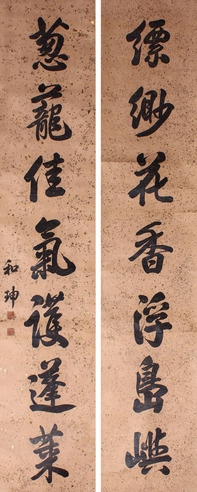 缥缈花香浮島嶼
葱蘢佳氣護蓬莱
和珅